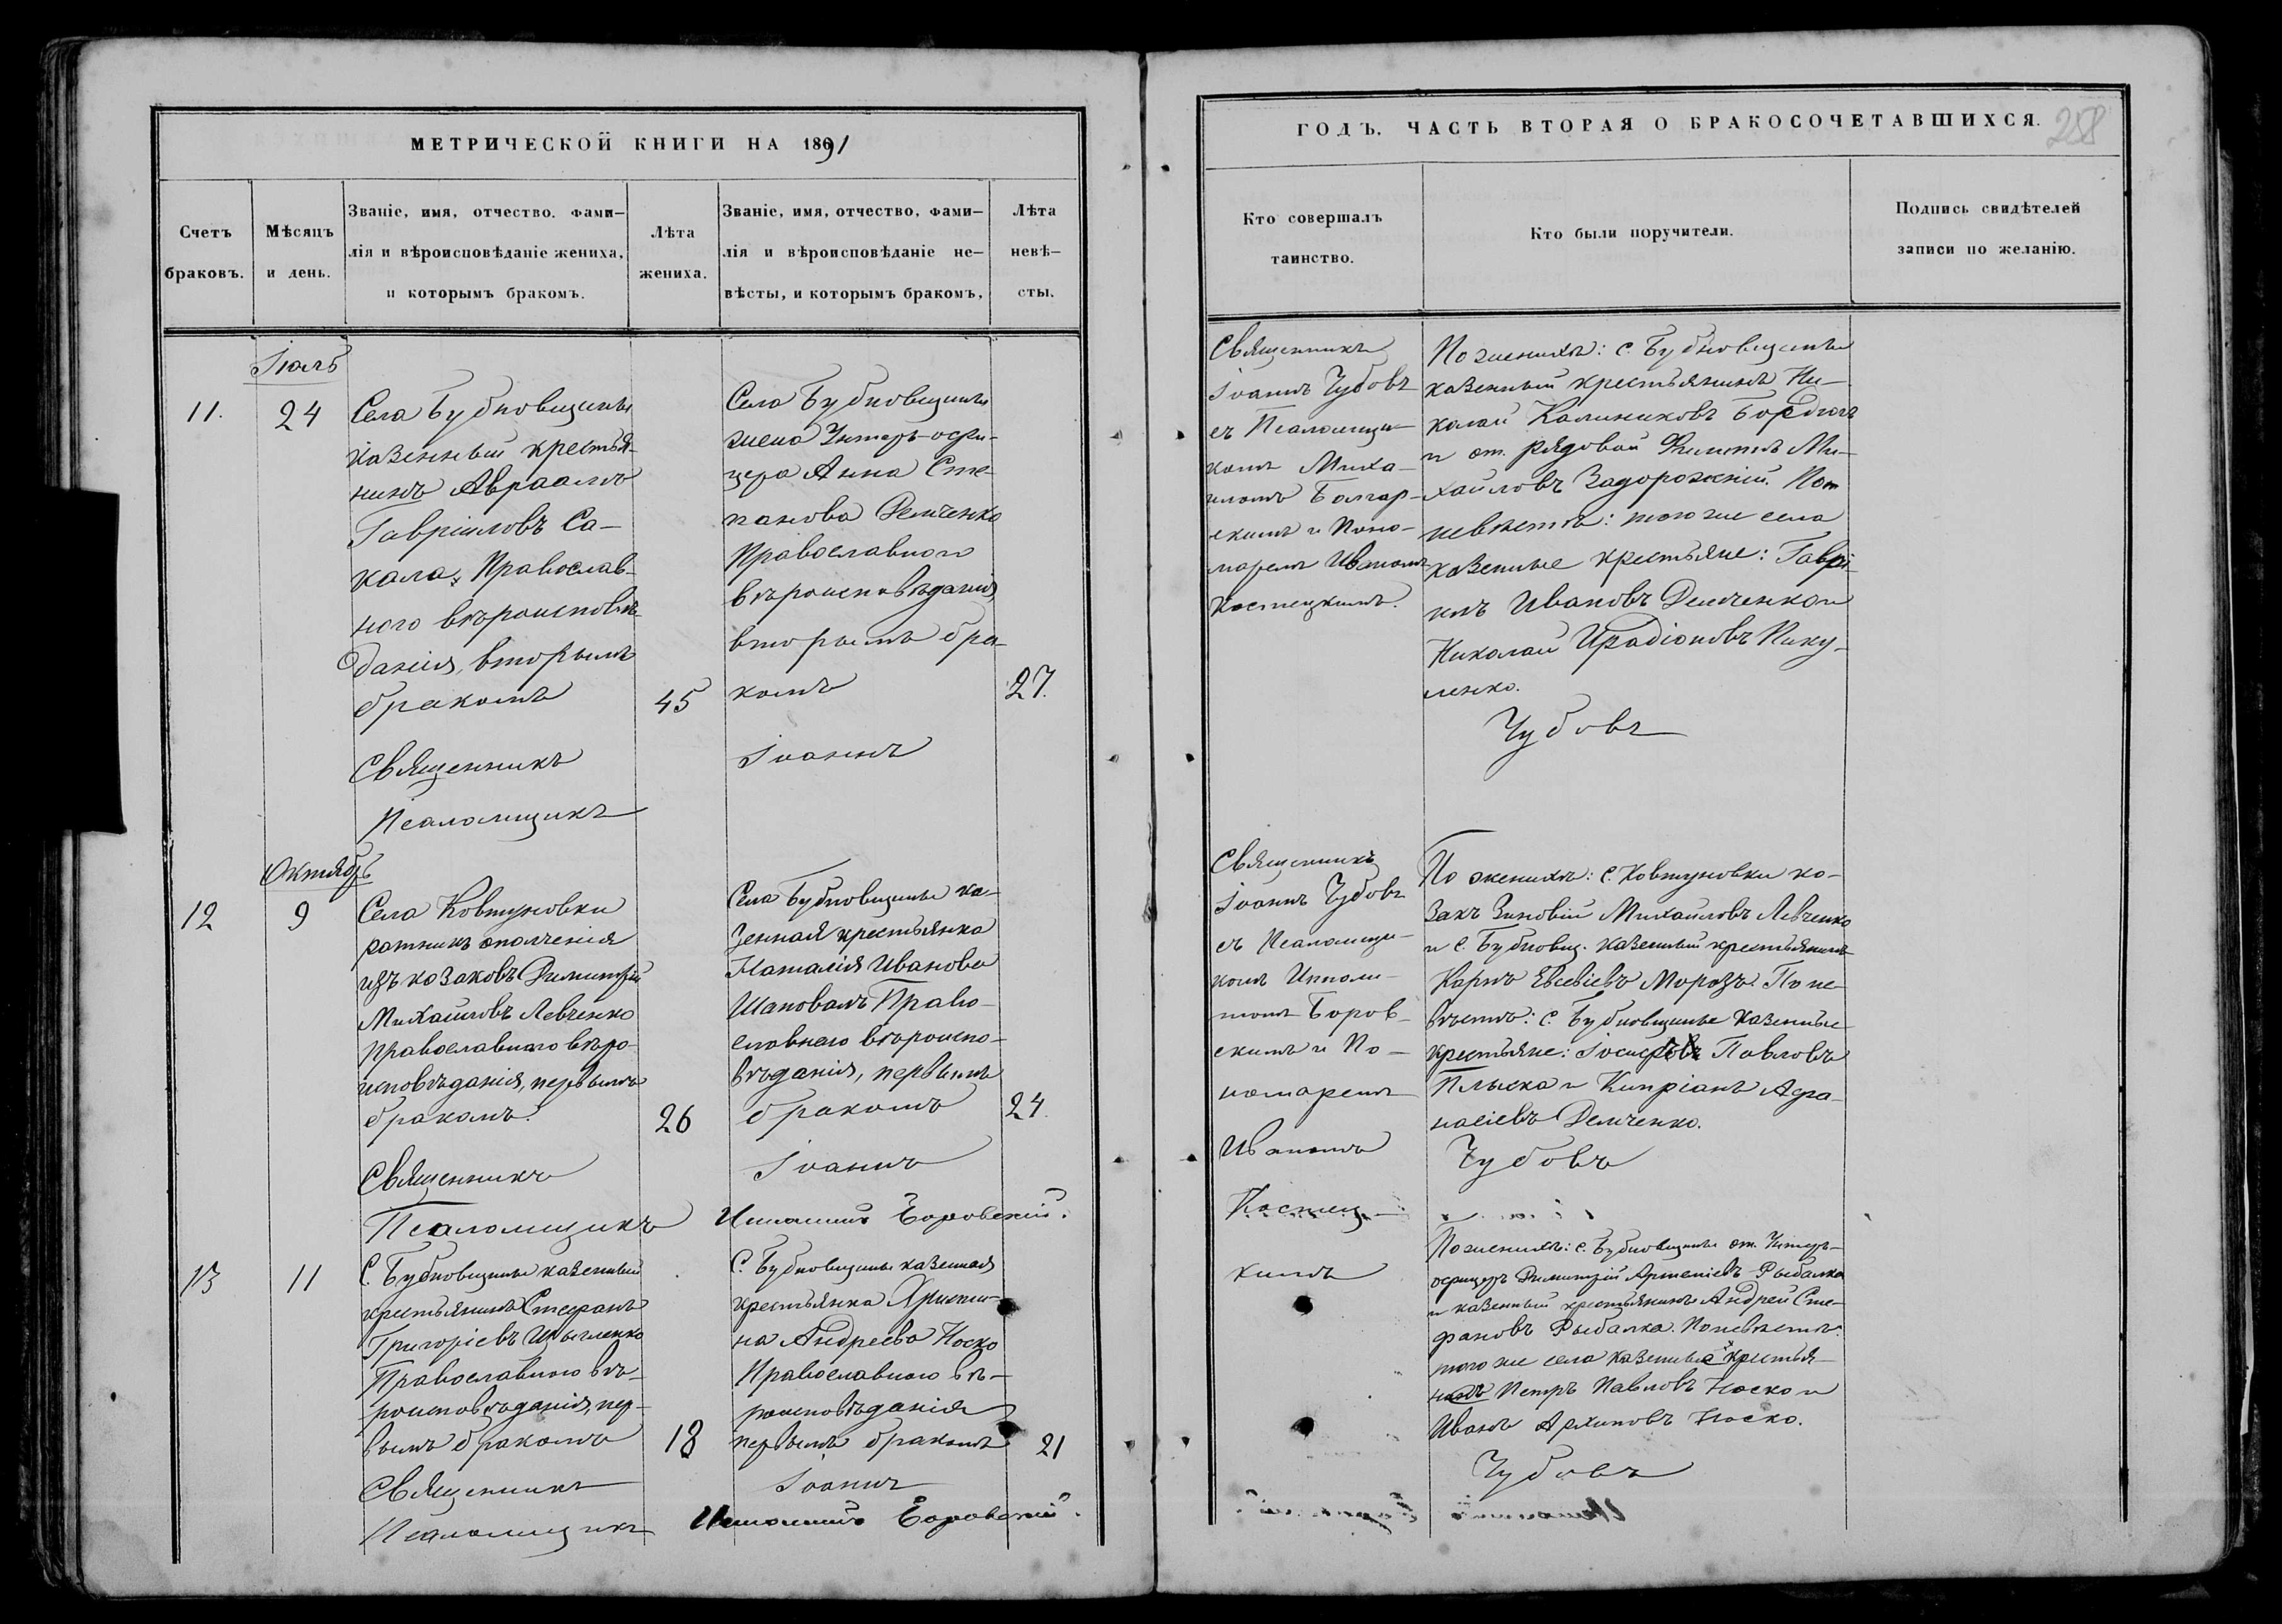 МЕТРИЧЕСКОЙ КНИГИ НА 1891
Счетъ
браковъ.
Мѣсяцъ
и день.
Званіе, имя, отчество. фами-
лія и вѣроисповѣданіе жениха,
и которымъ бракомъ.
Лѣта
жениха.
Званіе, имя, отчество, фами-
лія и вѣроисповѣданіе не-
вѣсты, и которымъ бракомъ,
Лѣта
невѣ-
сты.
Іюль
11.
24
Села Бубновщины
казенный крестья-
нинъ Авраамъ
Гавріиловъ Са-
кала, Православ-
ного вѣроисповѣ-
данія, вторымъ
бракомъ
45
Села Бубновщины
жена Унтеръ-офи-
цера Анна Сте-
панова Демченко
Православного
вѣроисповѣданія,
вторымъ бра-
комъ
27.
Священникъ Іоаннъ
Псаломщикъ
Октябрь
12
9
Села Ковтуновки
ратникъ ополченія
изъ козаковъ Димитрій
Михайловъ Левченко
православного вѣро-
исповѣданія, первымъ
бракомъ.
26
Села Бубновщины ка-
зенная крестьянка
Наталія Иванова
Шаповалъ Право-
славного вѣроиспо-
вѣданія, первымъ
бракомъ
24.
Священникъ Іоаннъ
Псаломщикъ Иполитъ Боровскій.
13
11
С. Бубновщины казенный
крестьянинъ Стефанъ
Григоріевъ
Православного вѣ-
роисповѣданія, пер-
вымъ бракомъ
18
С. Бубновщины казенная
крестьянка Христи-
на Андреева Носко
Православного вѣ-
роисповѣданія
первымъ бракомъ
21
Священникъ Іоаннъ
Псаломщикъ Иполитъ Боровскій.
ГОДЪ. ЧАСТЬ ВТОРАЯ О БРАКОСОЧЕТАВШИХСЯ.
258
Кто совершалъ
таинство.
Кто были поручители.
Подпись свидѣтелей
записи по желанію.
Священникъ
Іоаннъ Чубовъ
съ Псаломщи-
комъ Миха-
иломъ Болгар-
скимъ и Поно-
маремъ Иваномъ
Костецкимъ.
По женихѣ: с. Бубновщины
казенный крестьянинъ Ни-
колай Калиниковъ
и от. рядовой Филиппъ Ми-
хайловъ Задорожній. По
невѣстѣ: того же села
казенные крестьяне: Гаврі-
илъ Ивановъ Демченко и
Николай Иродіоновъ Пику-
ленко.
Чубовъ
Священникъ
Іоаннъ Чубовъ
съ Псаломщи-
комъ Иполи-
томъ Боров-
скимъ и По-
номаремъ
Иваномъ
Костец-
кимъ
По женихѣ: с. Ковтуновки ко-
закъ Зиновій Михайловъ Левченко
и с. Бубновщ. казенный крестьянинъ
Карпъ Евсевіевъ Морозъ. По не-
вѣстѣ: с. Бубновщины казенные
крестьяне: Іосифъ Павловъ
Плыска и Кипріанъ Афа-
насіевъ Демченко.
Чубовъ
По женихѣ: с. Бубновщины от. Унтеръ-
офицеръ Димитрій Артеміевъ Рыбалка
и казенный крестьянинъ Андрей Сте-
фановъ Рыбалка. По невѣстѣ:
того же села казенные крестья-
Петръ Павловъ Носко и
Иванъ Архиповъ Носко.
Чубовъ